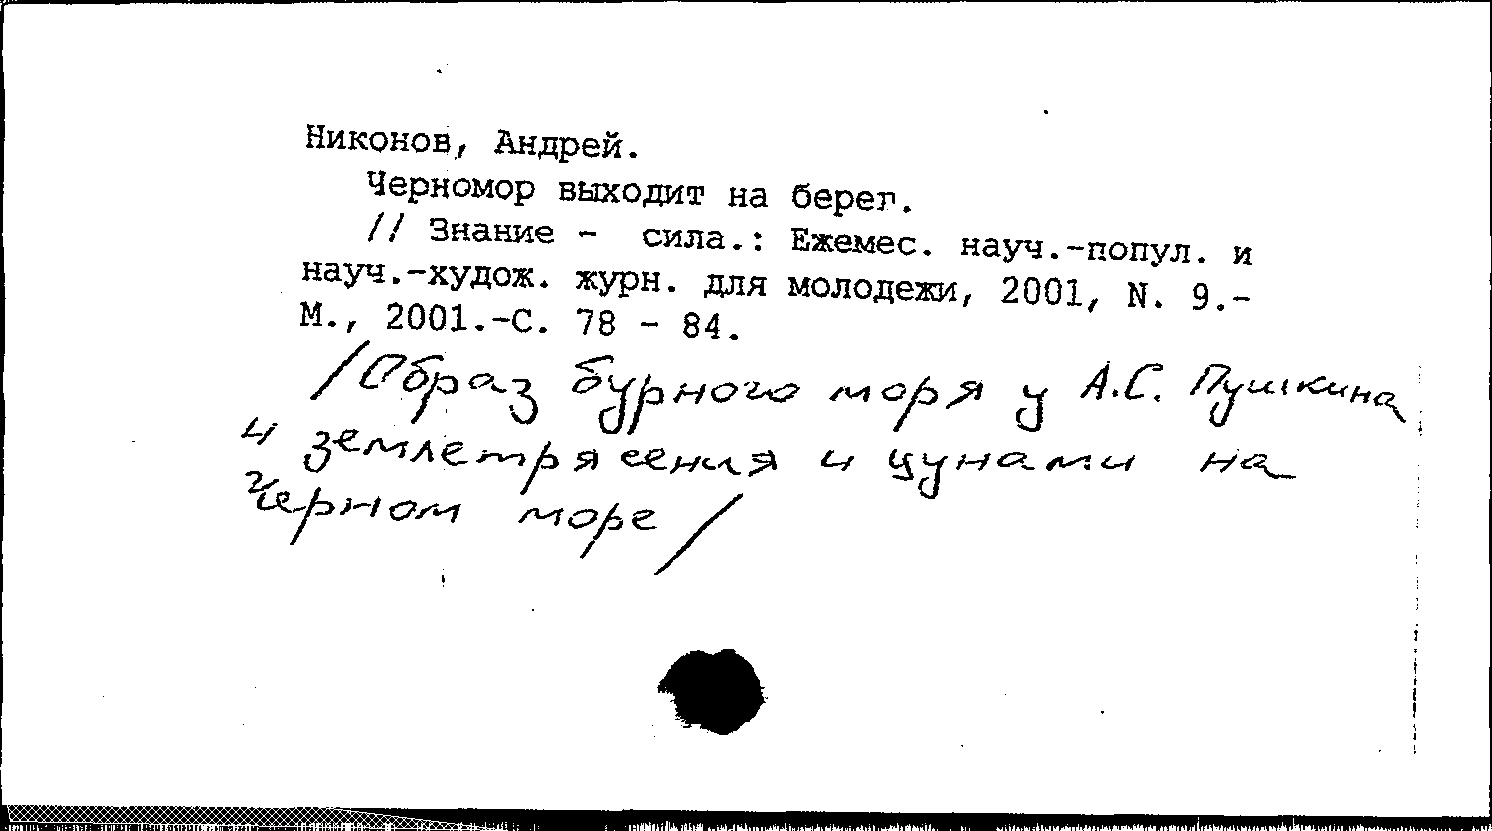 Никонов, Андрей.
Черномор выходит на берег.
// Знание - сила.: Ежемес. науч.-попул. и
науч.-худож. журн. для молодежи, 2001, N. 9.-
М., 2001.-С. 78 - 84.
/Образ бурного моря у А.С. Пушкина
и землетрясения и цунами на
Черном море/